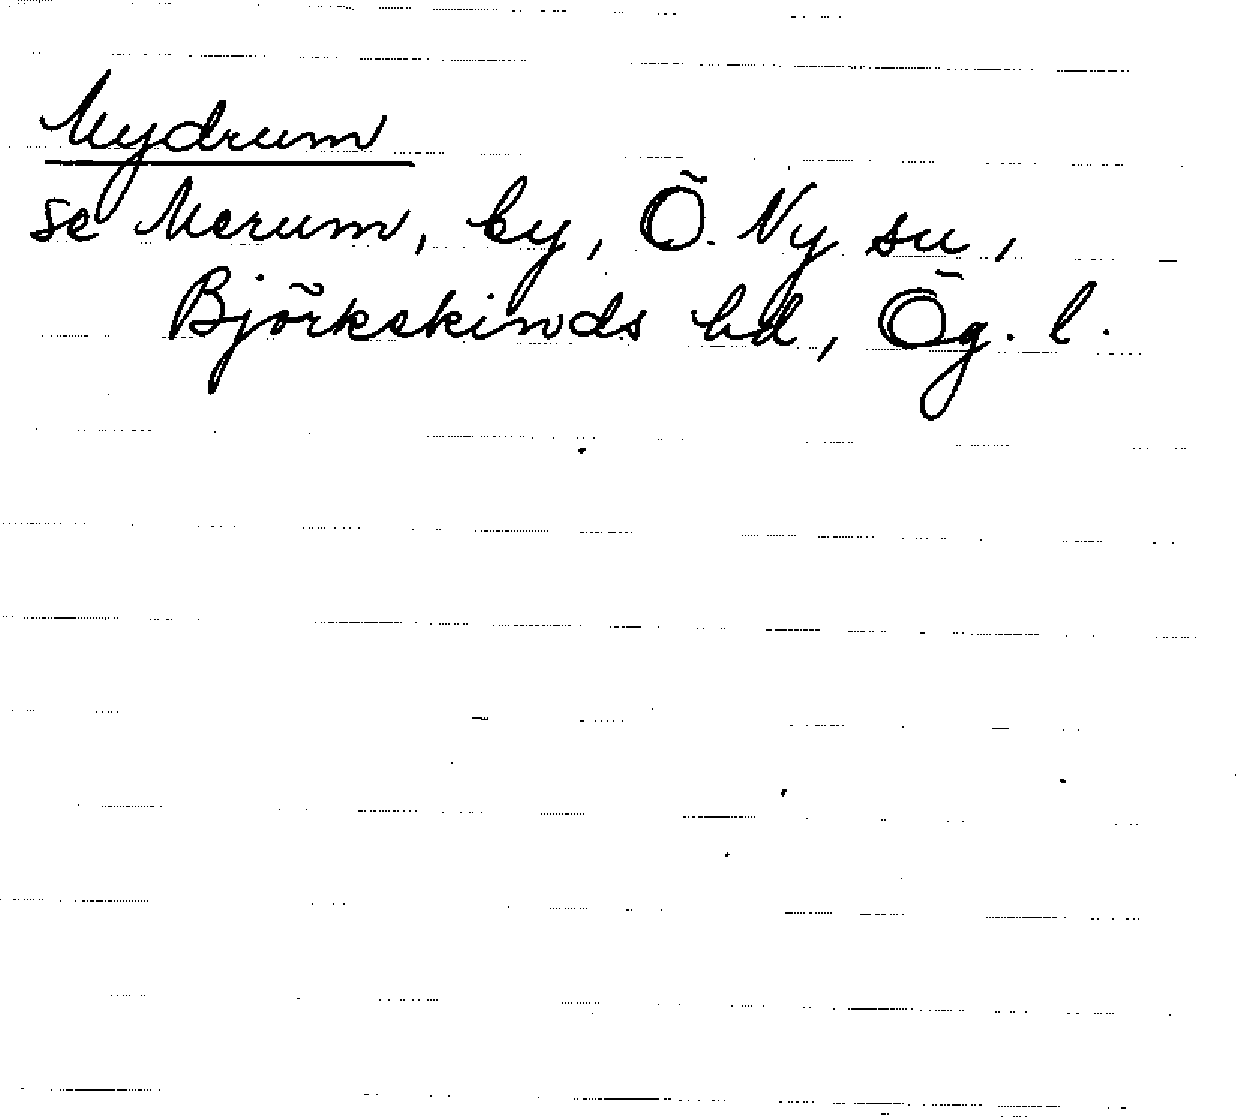 Mydrum
se Merum, by, Ö. Ny sn,
Björkekinds hd, Ög. l.